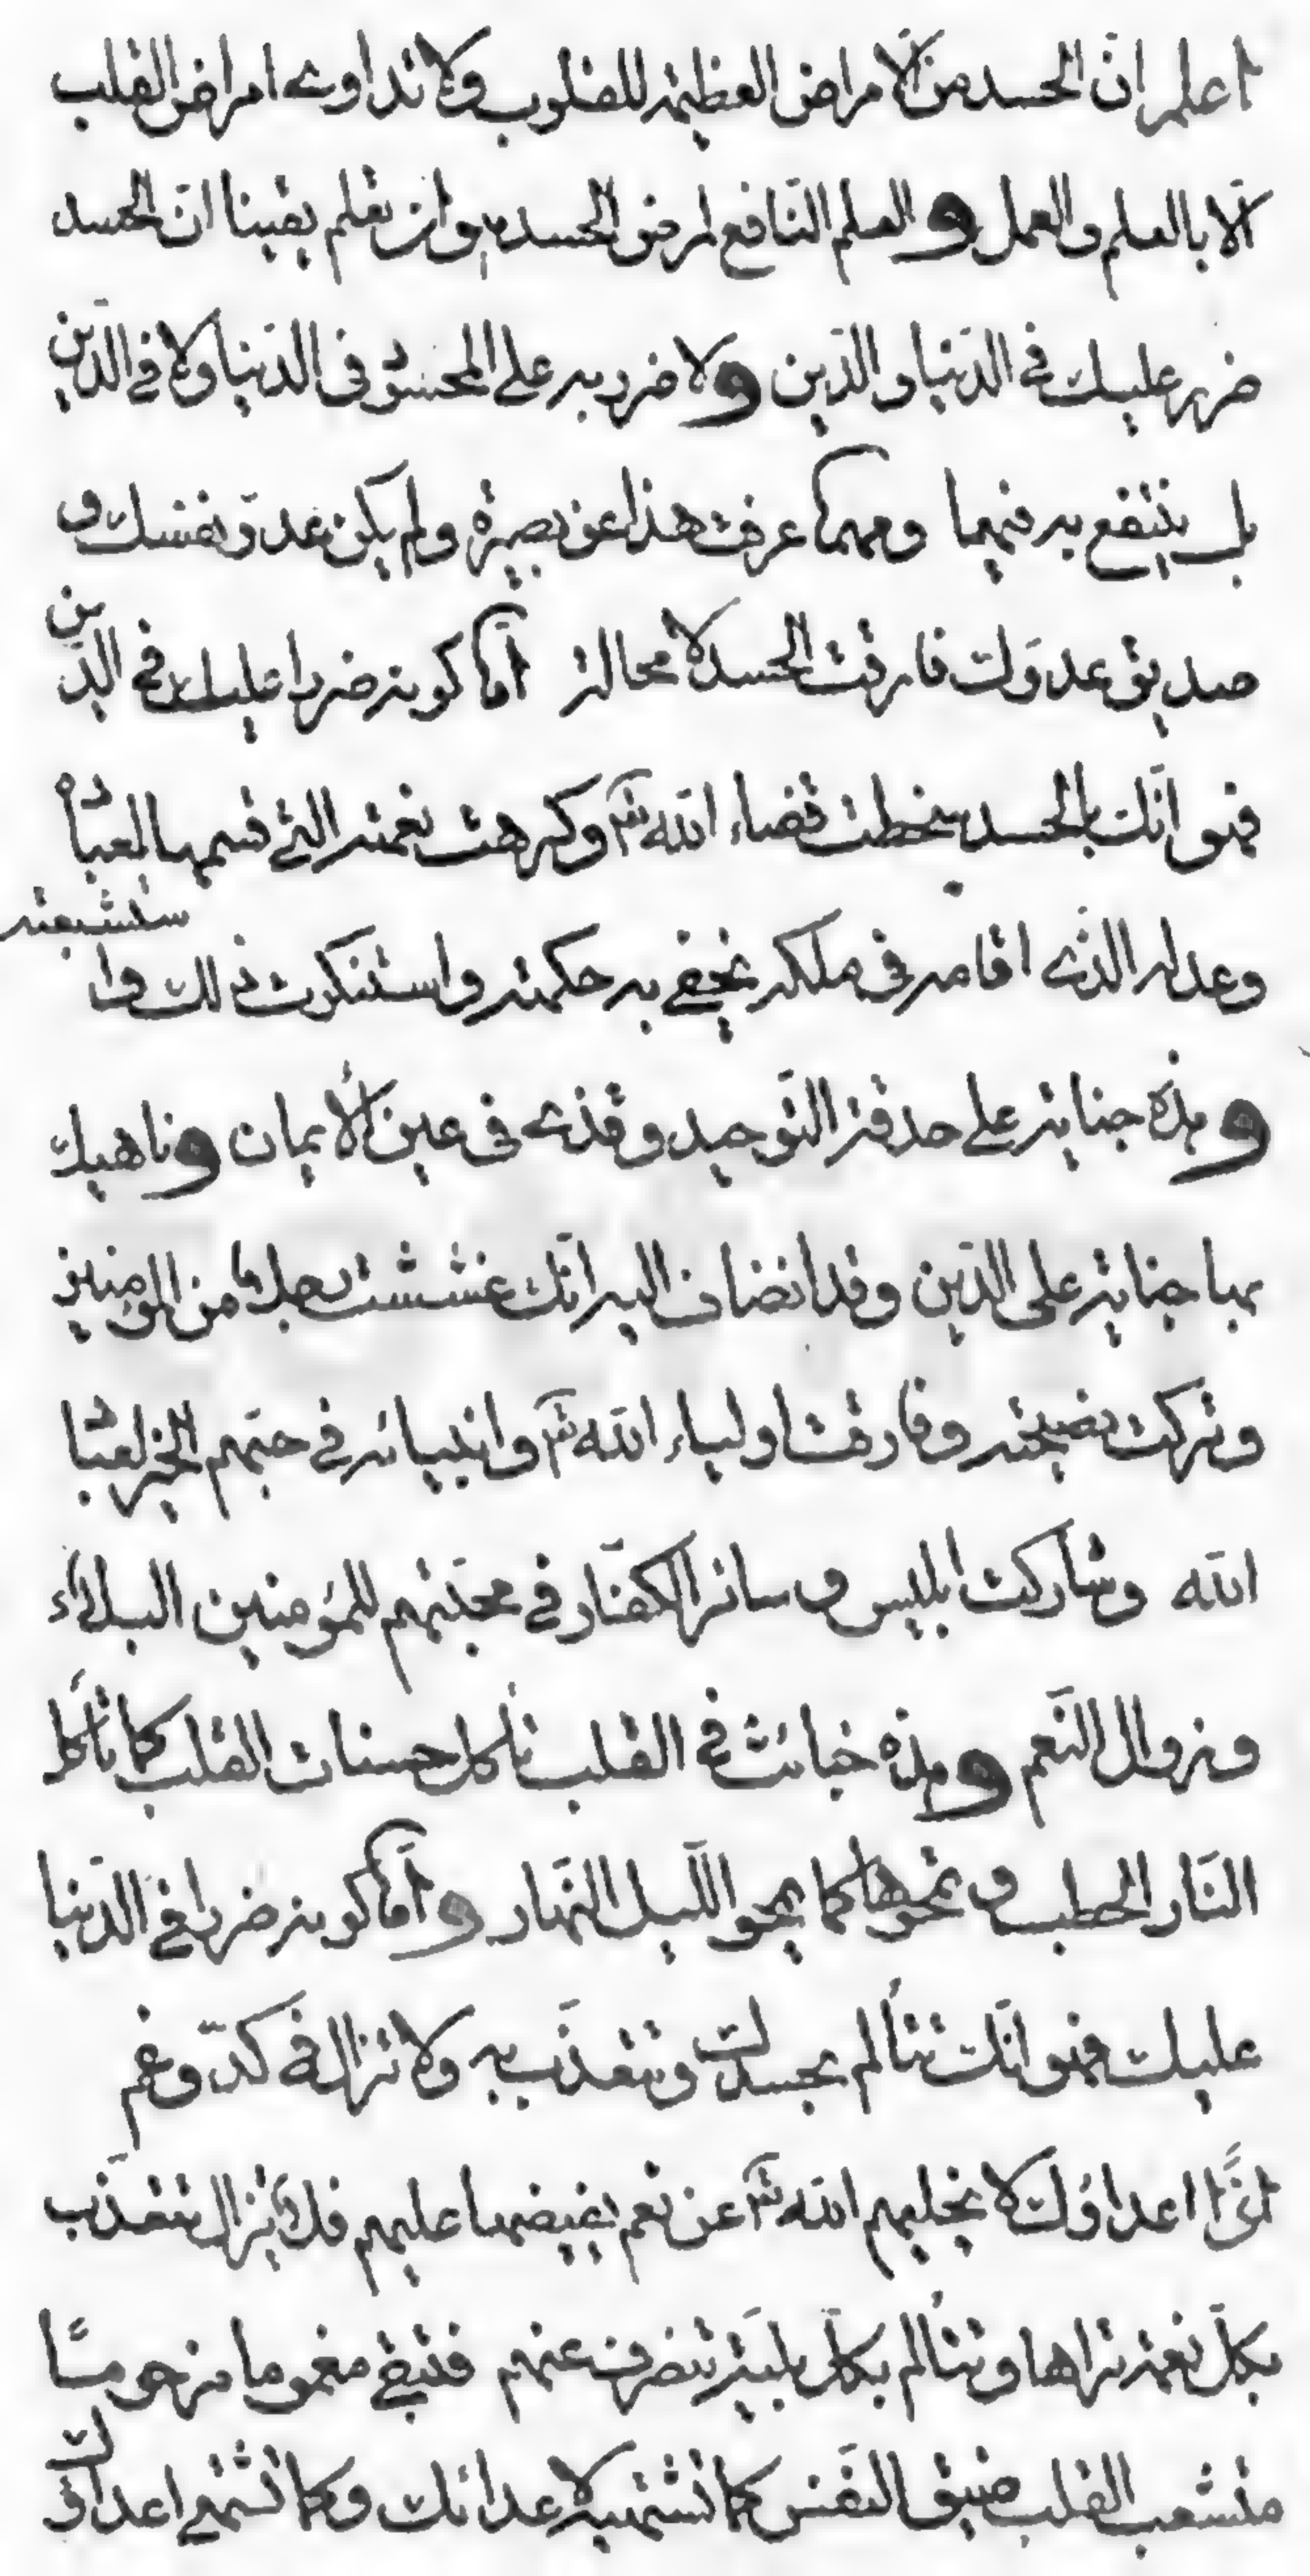 اعلم انّ الحسد من الأمراض العظيمة للقلوب ولا تداوى امراض القلب
الّا بالعلم والعمل والعلم النّافع لمرض الحسد هو ان تعلم يقينا انّ الحسد
ضرر عليك في الدّنيا والدّين ولا ضرر به على المحسود في الدّنيا ولا في الدّين
بل ينتفع به فيهما ومهما عرفت هذا عن بصيرة ولم يكن عدوّ نفسك و
صديق عدوّك فارقت الحسد لا محالة أمّا كونه ضررا عليك في الدّين
فهو انّك بالحسد سخطت قضاء الله تعٓ وكرهت نعمته التي قسمها لعباده
وعدله الذّى اقامه في ملكه بخفي به حكمته واستنكرت ذلك وا
ستشبعته
وهذه جناية على حدقة التّوحيد وقذى في عين الأيمان وناهيك
بها جناية على الدّين وقد انضاف اليه انّك غششت رجلا من المؤمنين
وتركت نصيحته وفارقت اولياء الله تعٓ وانبيائه في حبّهم الخير لعباد
الله وشاركت ابليس و سائر الكفّار في محبّتهم للمؤمنين البلاء
وزوال النّعم وهذه خبائث في القلب تأكل حسنات القلب كما تأكل
النّار الحطب و تمحوها كما يمحو اللّيل النّهار وأمّا كونه ضررا في الدّنيا
عليك فهو انّك تتألم بحسدك وتتعذّب به ولا تزال في كدّ وغم
اذًا اعداؤك لا يخليهم الله تعٓ عن نعم يفيضها عليهم فلا تزال تتعذّب
بكلّ نعمة تراها وتتألم بكلّ بليّة تنصرف عنهم فتبقى مغموما محرومًا
متشعب القلب ضيق النّفس كما تشتهيه لاعدائك وكما تشتهى اعداؤك